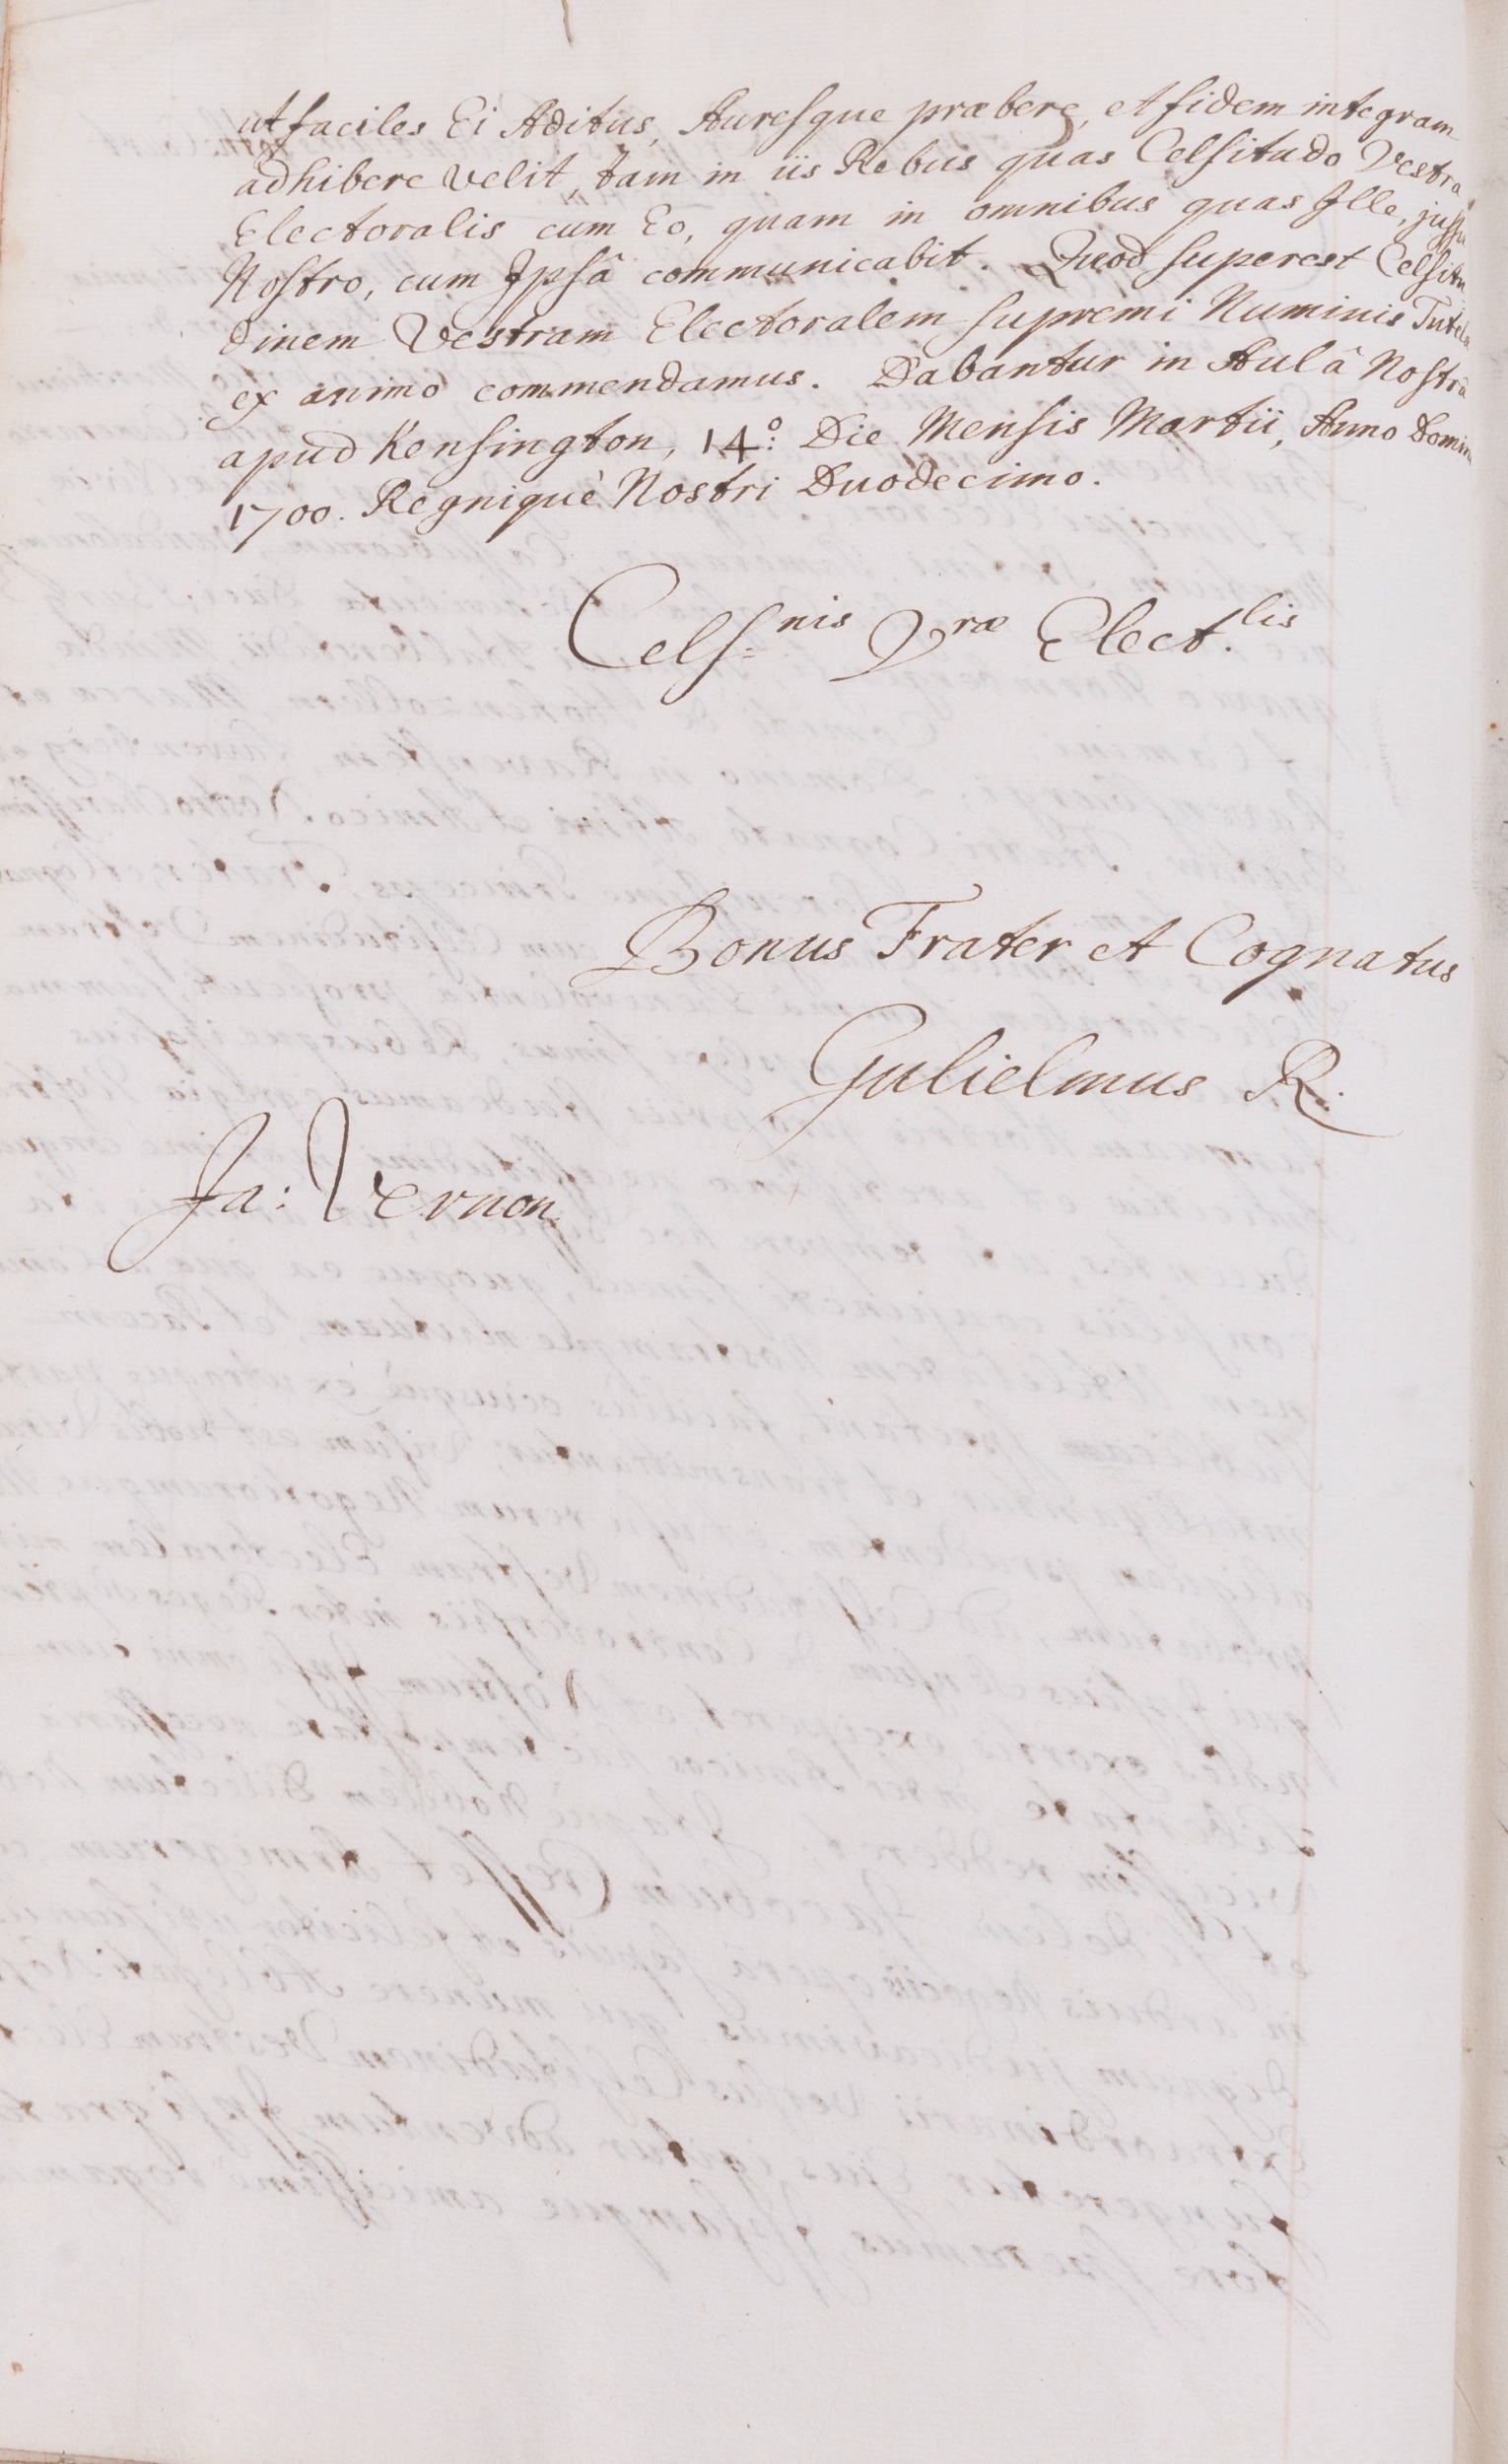 ut faciles Ei Aditus, Auresque præbere, et fidem integram
adhibere velit, tam in iis Rebus quas Celsitudo Vestra
Electoralis cum Eo, quam in omnibus quas Ille, jussu
Nostro, cum Ipsâ communicabit. Quod superest Celsitu
dinem Vestram Electoralem supremi Numinis Tutelæ
ex animo commendamus. Dabantur in Aulâ Nostrâ
apud Kensington, 14º: Die Mensis Martii, Anno Domini
1700. Regnique Nostri Duodecimo.
Cels:nis Vræ Elect.lis
Bonus Frater et Cognatus
Gulielmus R.
Ja: Vernon.